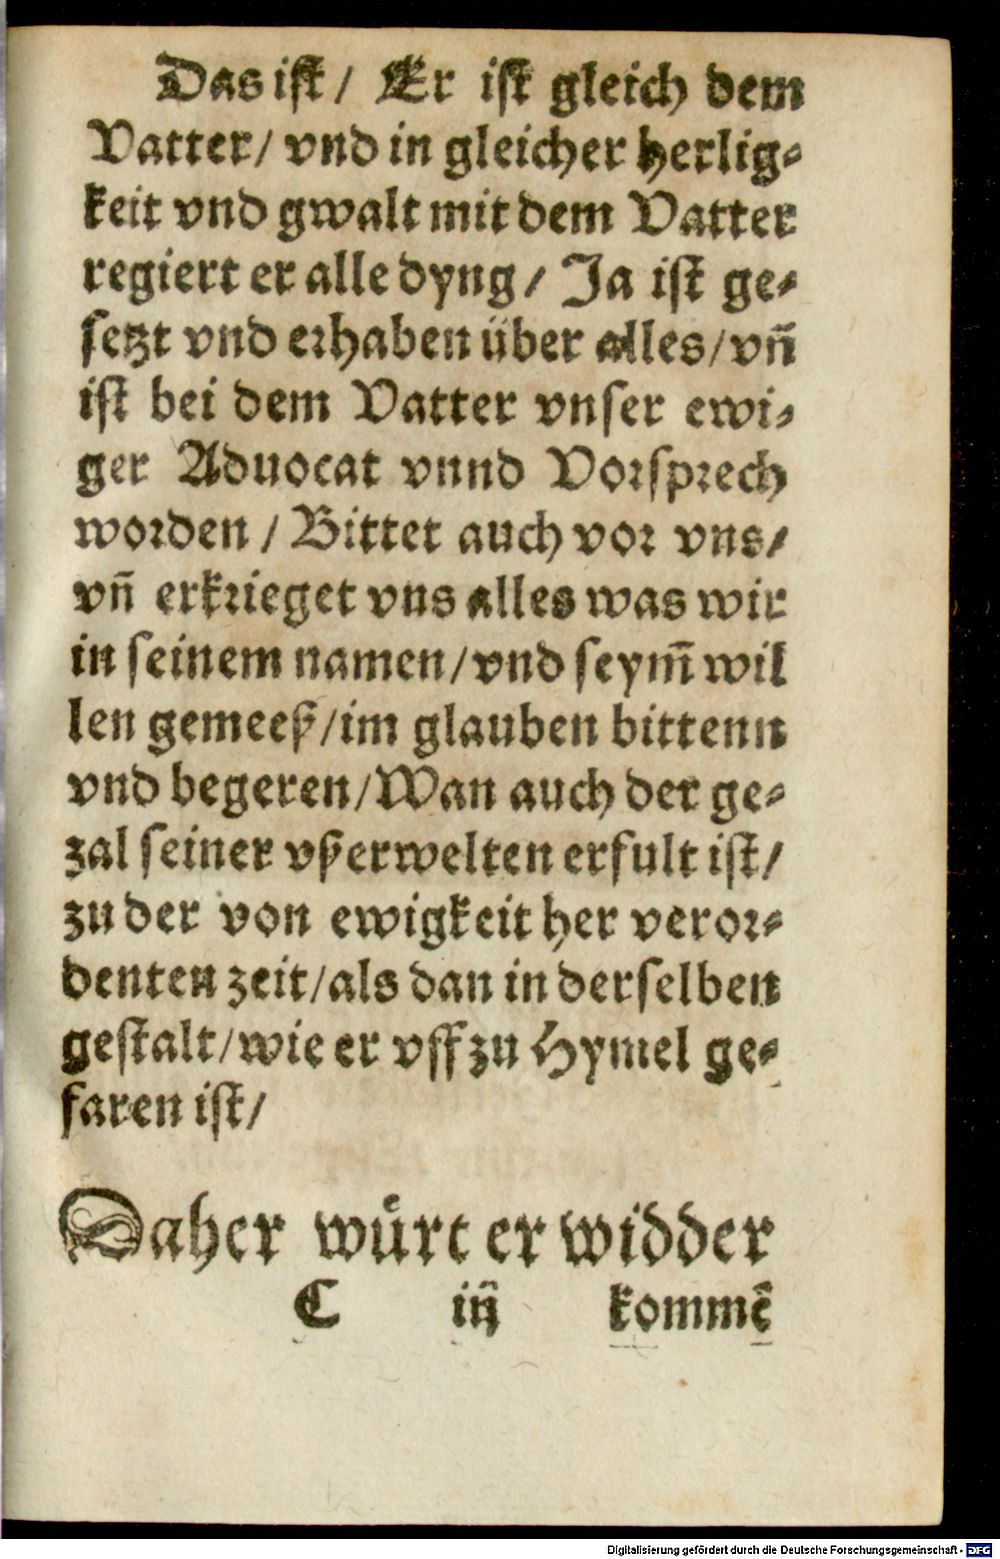 Das ist / Er ist gleich dem
Vatter / vnd in gleicher herlig⸗
keit vnd gwalt mit dem Vatter
regiert er alle dyng / Ja ist ge⸗
setzt vnd erhaben über alles / vñ
ist bei dem Vatter vnser ewi⸗
ger Aduocat vnnd Vorsprech
worden / Bittet auch vor vns /
vñ erkrieget vns alles was wir
in seinem namen / vnd seym̃ wil
len gemeeß / im glauben bittenn
vnd begeren / Wan auch der ge⸗
zal seiner vßerwelten erfult ist /
zu der von ewigkeit her veror⸗
denten zeit / als dan in derselben
gestalt / wie er vff zu Hymel ge⸗
faren ist /
Daher wuͤrt er widder
C iij kommẽ
Digitalisierung gefördert durch die Deutsche Forschungsgemeinschaft - DFG